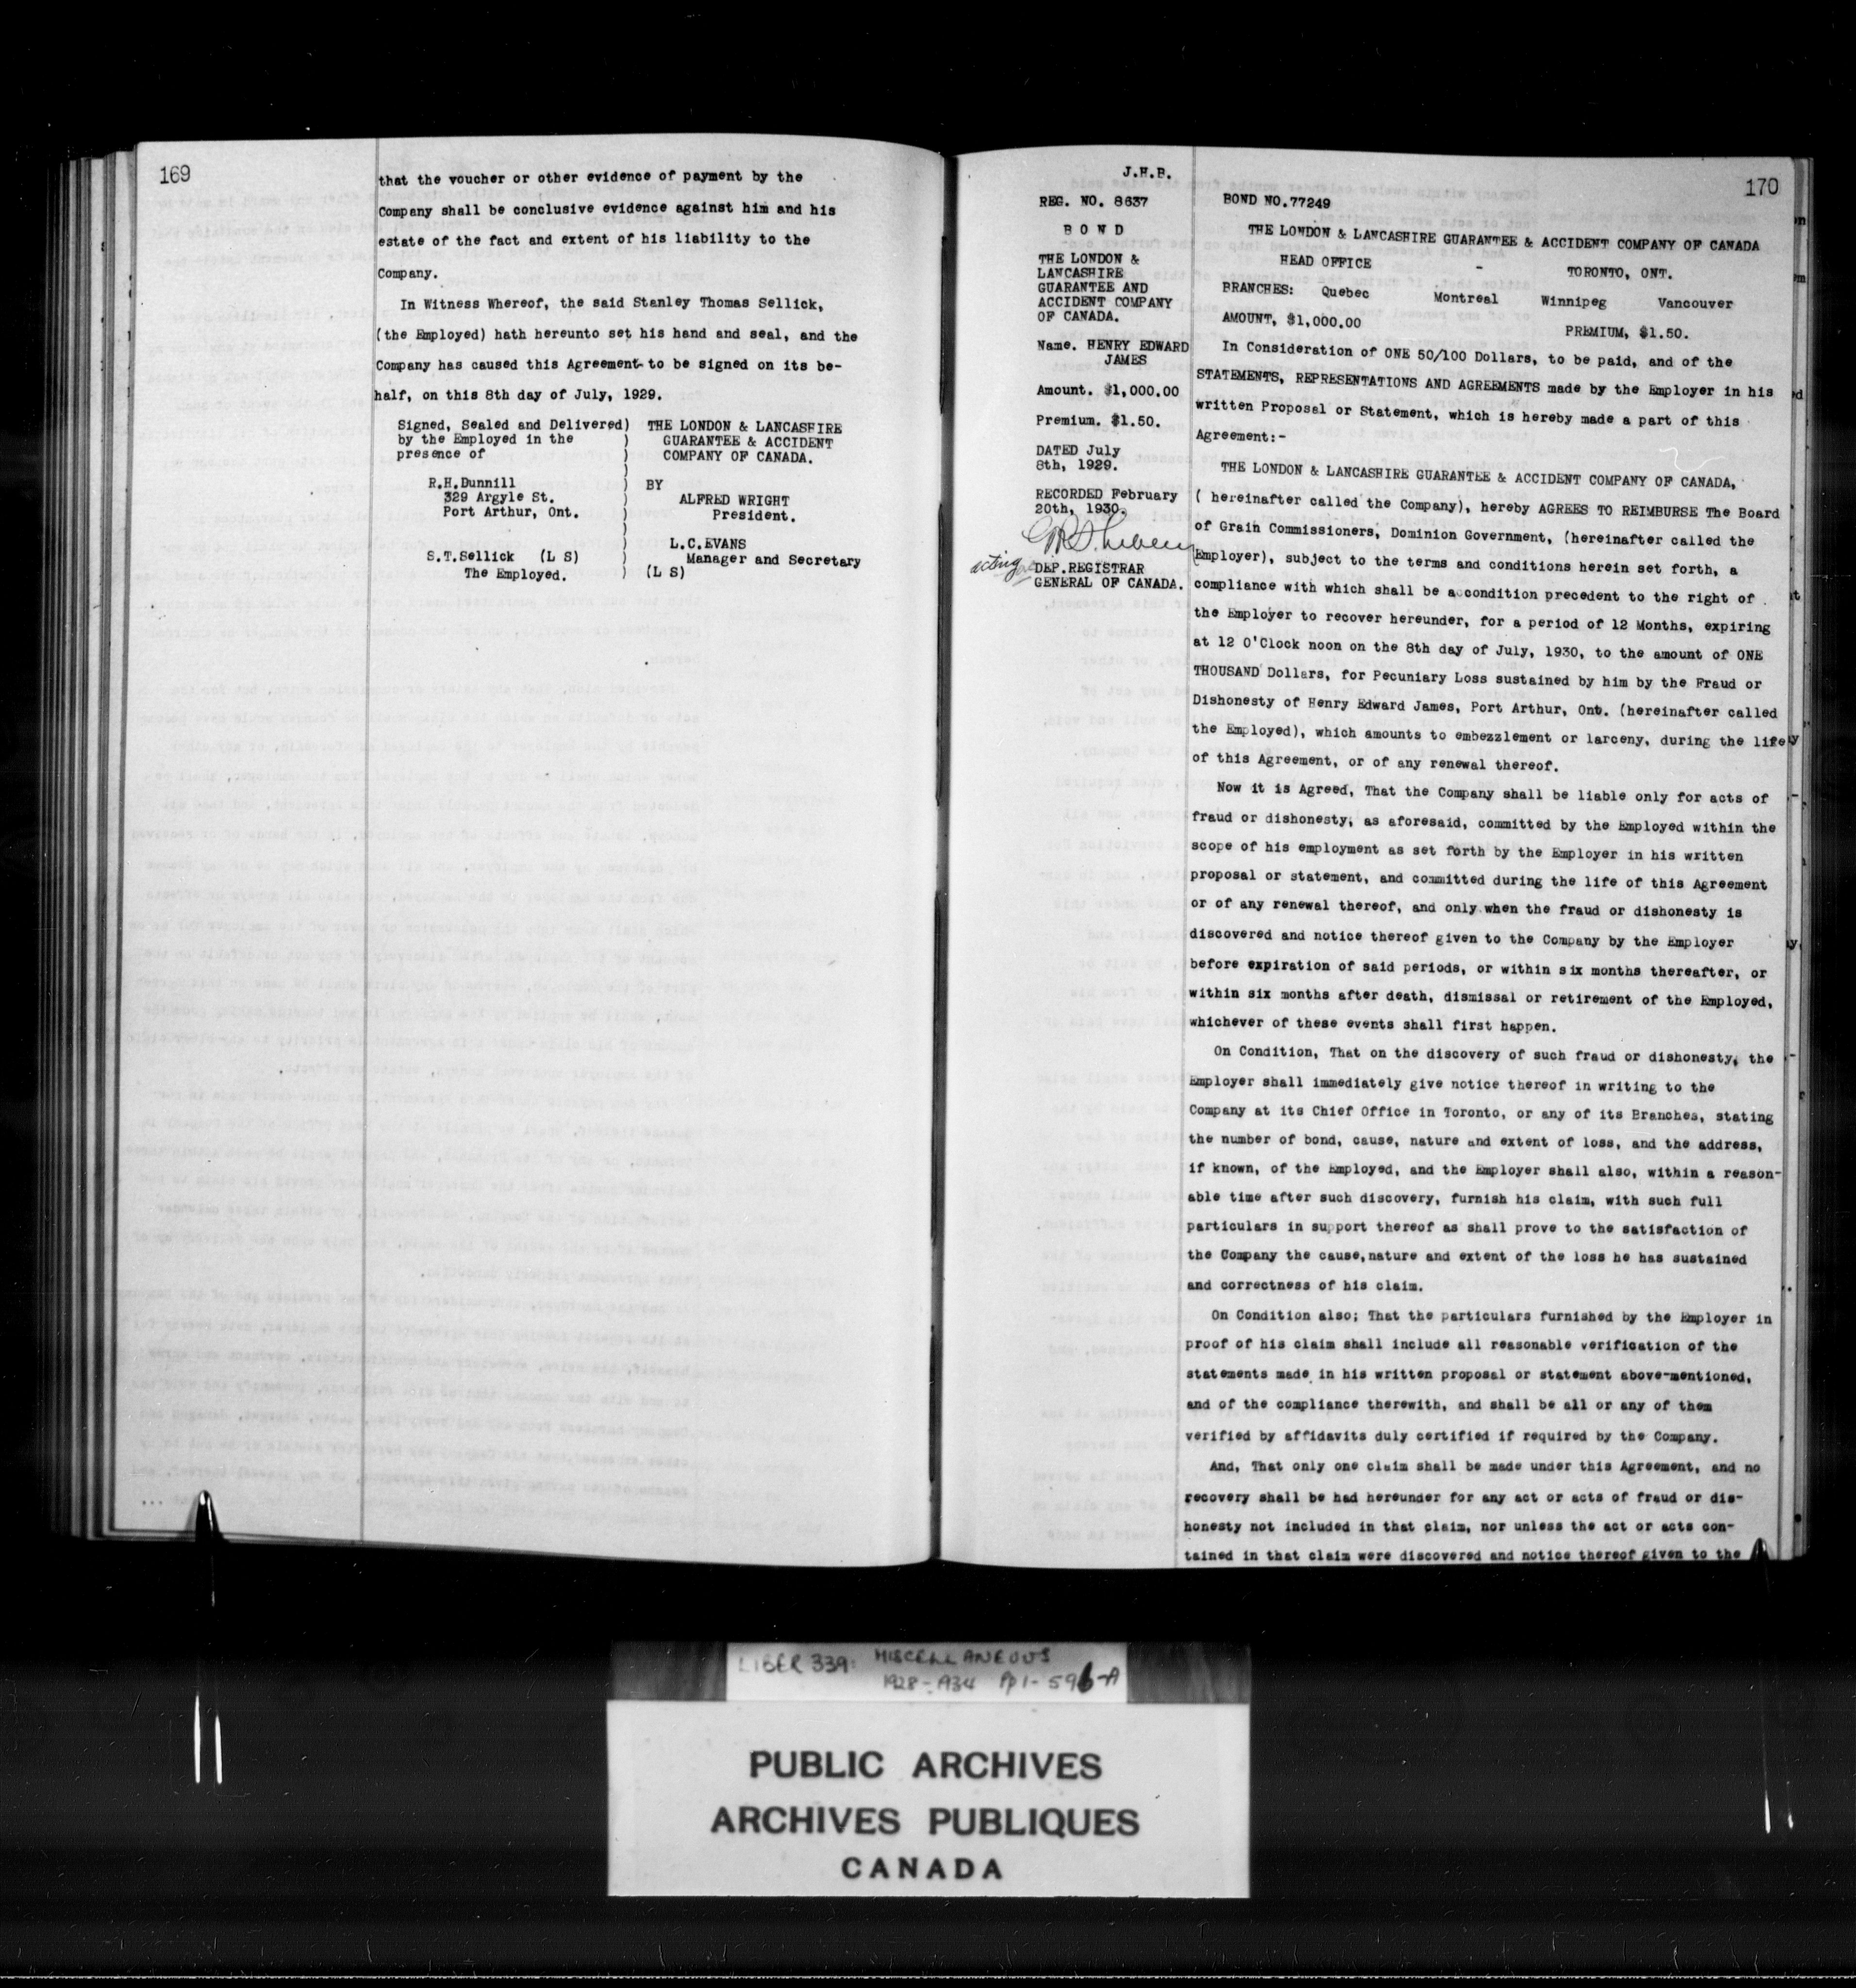 169
that the voucher or other evidence of payment by the
Company shall be conclusive evidence against him and his
estate of the fact and extent of his liability to the
Company.
In Witness Whereof, the said Stanley Thomas Sellick,
(the Employed) hath hereunto set his hand and seal, and the
Company has caused this Agreement to be signed on its be-
half, on this 8th day of July, 1929.
Signed, Sealed and Delivered)
by the Employed in the )
presence of )
)
R.H.Dunnill )
329 Argyle St. )
Port Arthur, Ont. )
)
)
S.T.Sellick (L S) )
The Employed. )
THE LONDON & LANCASHIRE
GUARANTEE & ACCIDENT
COMPANY OF CANADA.
BY
ALFRED WRIGHT
President.
L.C.EVANS
Manager and Secretary
(L S)
J.H.B.
REG. NO. 8637
B O N D
THE LONDON &
LANCASHIRE
GUARANTEE AND
ACCIDENT COMPANY
OF CANADA.
Name. HENRY EDWARD
JAMES
Amount. $1,000.00
Premium. $1.50.
DATED July
8th, 1929.
RECORDED February
20th, 1930.
acting
DEP.REGISTRAR
GENERAL OF CANADA.
170
BOND NO.77249
THE LONDON & LANCASHIRE GUARANTEE & ACCIDENT COMPANY OF CANADA
HEAD OFFICE - TORONTO, ONT.
BRANCHES: Quebec Montreal Winnipeg Vancouver
AMOUNT, $1,000.00 PREMIUM, $1.50.
In Consideration of ONE 50/100 Dollars, to be paid, and of the
STATEMENTS, REPRESENTATIONS AND AGREEMENTS made by the Employer in his
written Proposal or Statement, which is hereby made a part of this
Agreement:-
THE LONDON & LANCASHIRE GUARANTEE & ACCIDENT COMPANY OF CANADA,
( hereinafter called the Company), hereby AGREES TO REIMBURSE The Board
of Grain Commissioners, Dominion Government, (hereinafter called the
Employer), subject to the terms and conditions herein set forth, a
compliance with which shall be a condition precedent to the right of
the Employer to recover hereunder, for a period of 12 Months, expiring
at 12 O'Clock noon on the 8th day of July, 1930, to the amount of ONE
THOUSAND Dollars, for Pecuniary Loss sustained by him by the Fraud or
Dishonesty of Henry Edward James, Port Arthur, Ont. (hereinafter called
the Employed), which amounts to embezzlement or larceny, during the life
of this Agreement, or of any renewal thereof.
Now it is Agreed, That the Company shall be liable only for acts of
fraud or dishonesty, as aforesaid, committed by the Employed within the
scope of his employment as set forth by the Employer in his written
proposal or statement, and committed during the life of this Agreement
or of any renewal thereof, and only when the fraud or dishonesty is
discovered and notice thereof given to the Company by the Employer
before expiration of said periods, or within six months thereafter, or
within six months after death, dismissal or retirement of the Employed,
whichever of these events shall first happen.
On Condition, That on the discovery of such fraud or dishonesty, the
Employer shall immediately give notice thereof in writing to the
Company at its Chief Office in Toronto, or any of its Branches, stating
the number of bond, cause, nature and extent of loss, and the address,
if known, of the Employed, and the Employer shall also, within a reason-
able time after such discovery, furnish his claim, with such full
particulars in support thereof as shall prove to the satisfaction of
the Company the cause,nature and extent of the loss he has sustained
and correctness of his claim.
On Condition also; That the particulars furnished by the Employer in
proof of his claim shall include all reasonable verification of the
statements made in his written proposal or statement above-mentioned,
and of the compliance therewith, and shall be all or any of them
verified by affidavits duly certified if required by the Company.
And, That only one claim shall be made under this Agreement, and no
recovery shall be had hereunder for any act or acts of fraud or dis-
honesty not included in that claim, nor unless the act or acts con-
tained in that claim were discovered and notice thereof given to the
LIBER 339: MISCELLANEOUS
1928-1934 pp1-596-A
PUBLIC ARCHIVES
ARCHIVES PUBLIQUES
CANADA